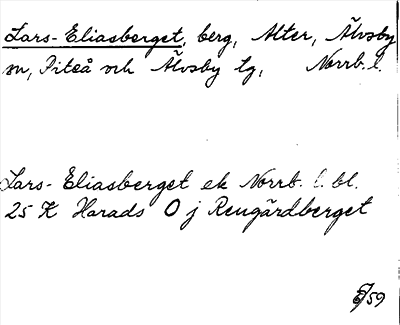 Lars-Eliasberget, berg, Alter, Älvsby
sn, Piteå och Älvsby tg, Norrb. l.
Lars-Eliasberget ek Norrb. l. bl.
25 K Harads O j Rengårdberget
/59